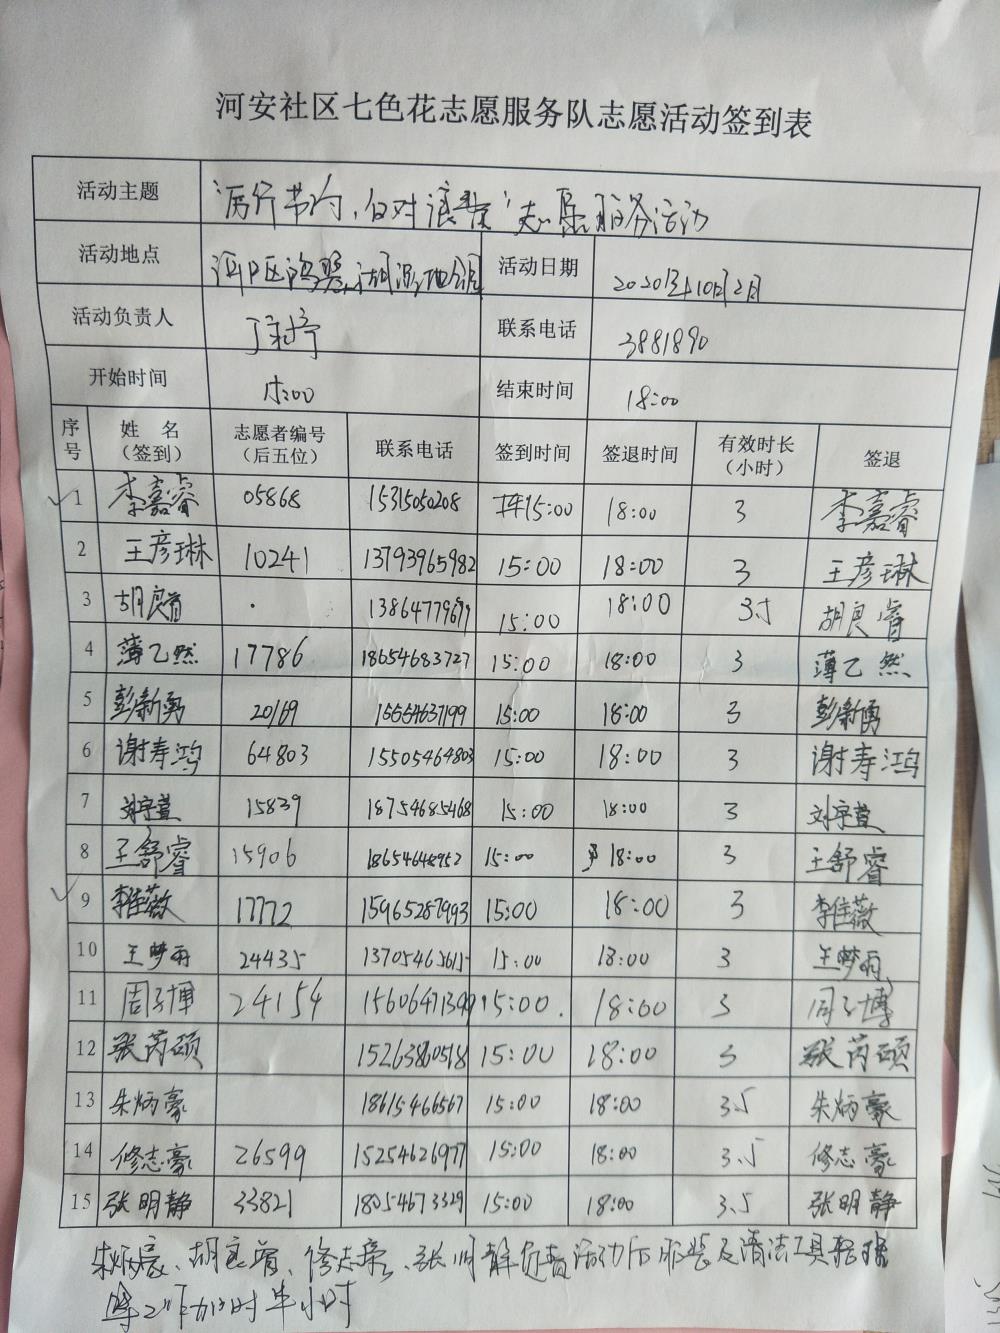 河安社区七色花志愿服务队志愿活动签到表
活动主题 “厉行节约,反对浪费”志愿服务活动
活动地点 活动日期 2020年10月2日
活动负责人 联系电话 3881890
开始时间 15:00 结束时间 18:00
序号 姓名(签到) 志愿者编号(后五位) 联系电话 签到时间 签退时间 有效时长(小时) 签退
1 李嘉睿 05868 15315050208 15:00 18:00 3 李嘉睿
2 王彦琳 10241 13793965982 15:00 18:00 3 王彦琳
3 胡良睿 15:00 18:00 3.5 胡良睿
4 薄乙然 17786 18654683727 15:00 18:00 3 薄乙然
5 彭新勇 20169 15554637199 15:00 18:00 3 彭新勇
6 谢寿鸿 64803 15505464803 15:00 18:00 3 谢寿鸿
7 刘宇萱 15839 18754685468 15:00 18:00 3 刘宇萱
8 王舒睿 15906 15:00 18:00 3 王舒睿
9 李佳薇 17772 15965287993 15:00 18:00 3 李佳薇
10 王梦雨 24435 13705465615 15:00 18:00 3 王梦雨
11 周子博 24154 15:00. 18:00 3 周子博
12 张芮硕 15263860518 15:00 18:00 3 张芮硕
13 朱炳豪 18615466567 15:00 18:00 3.5 朱炳豪
14 修志豪 26599 15254626977 15:00 18:00 3.5 修志豪
15 张明静 33821 18054673329 15:00 18:00 3.5 张明静
朱炳豪、胡良睿、修志豪、张明静负责活动后服装及清洁工具整理
等工作加时半小时